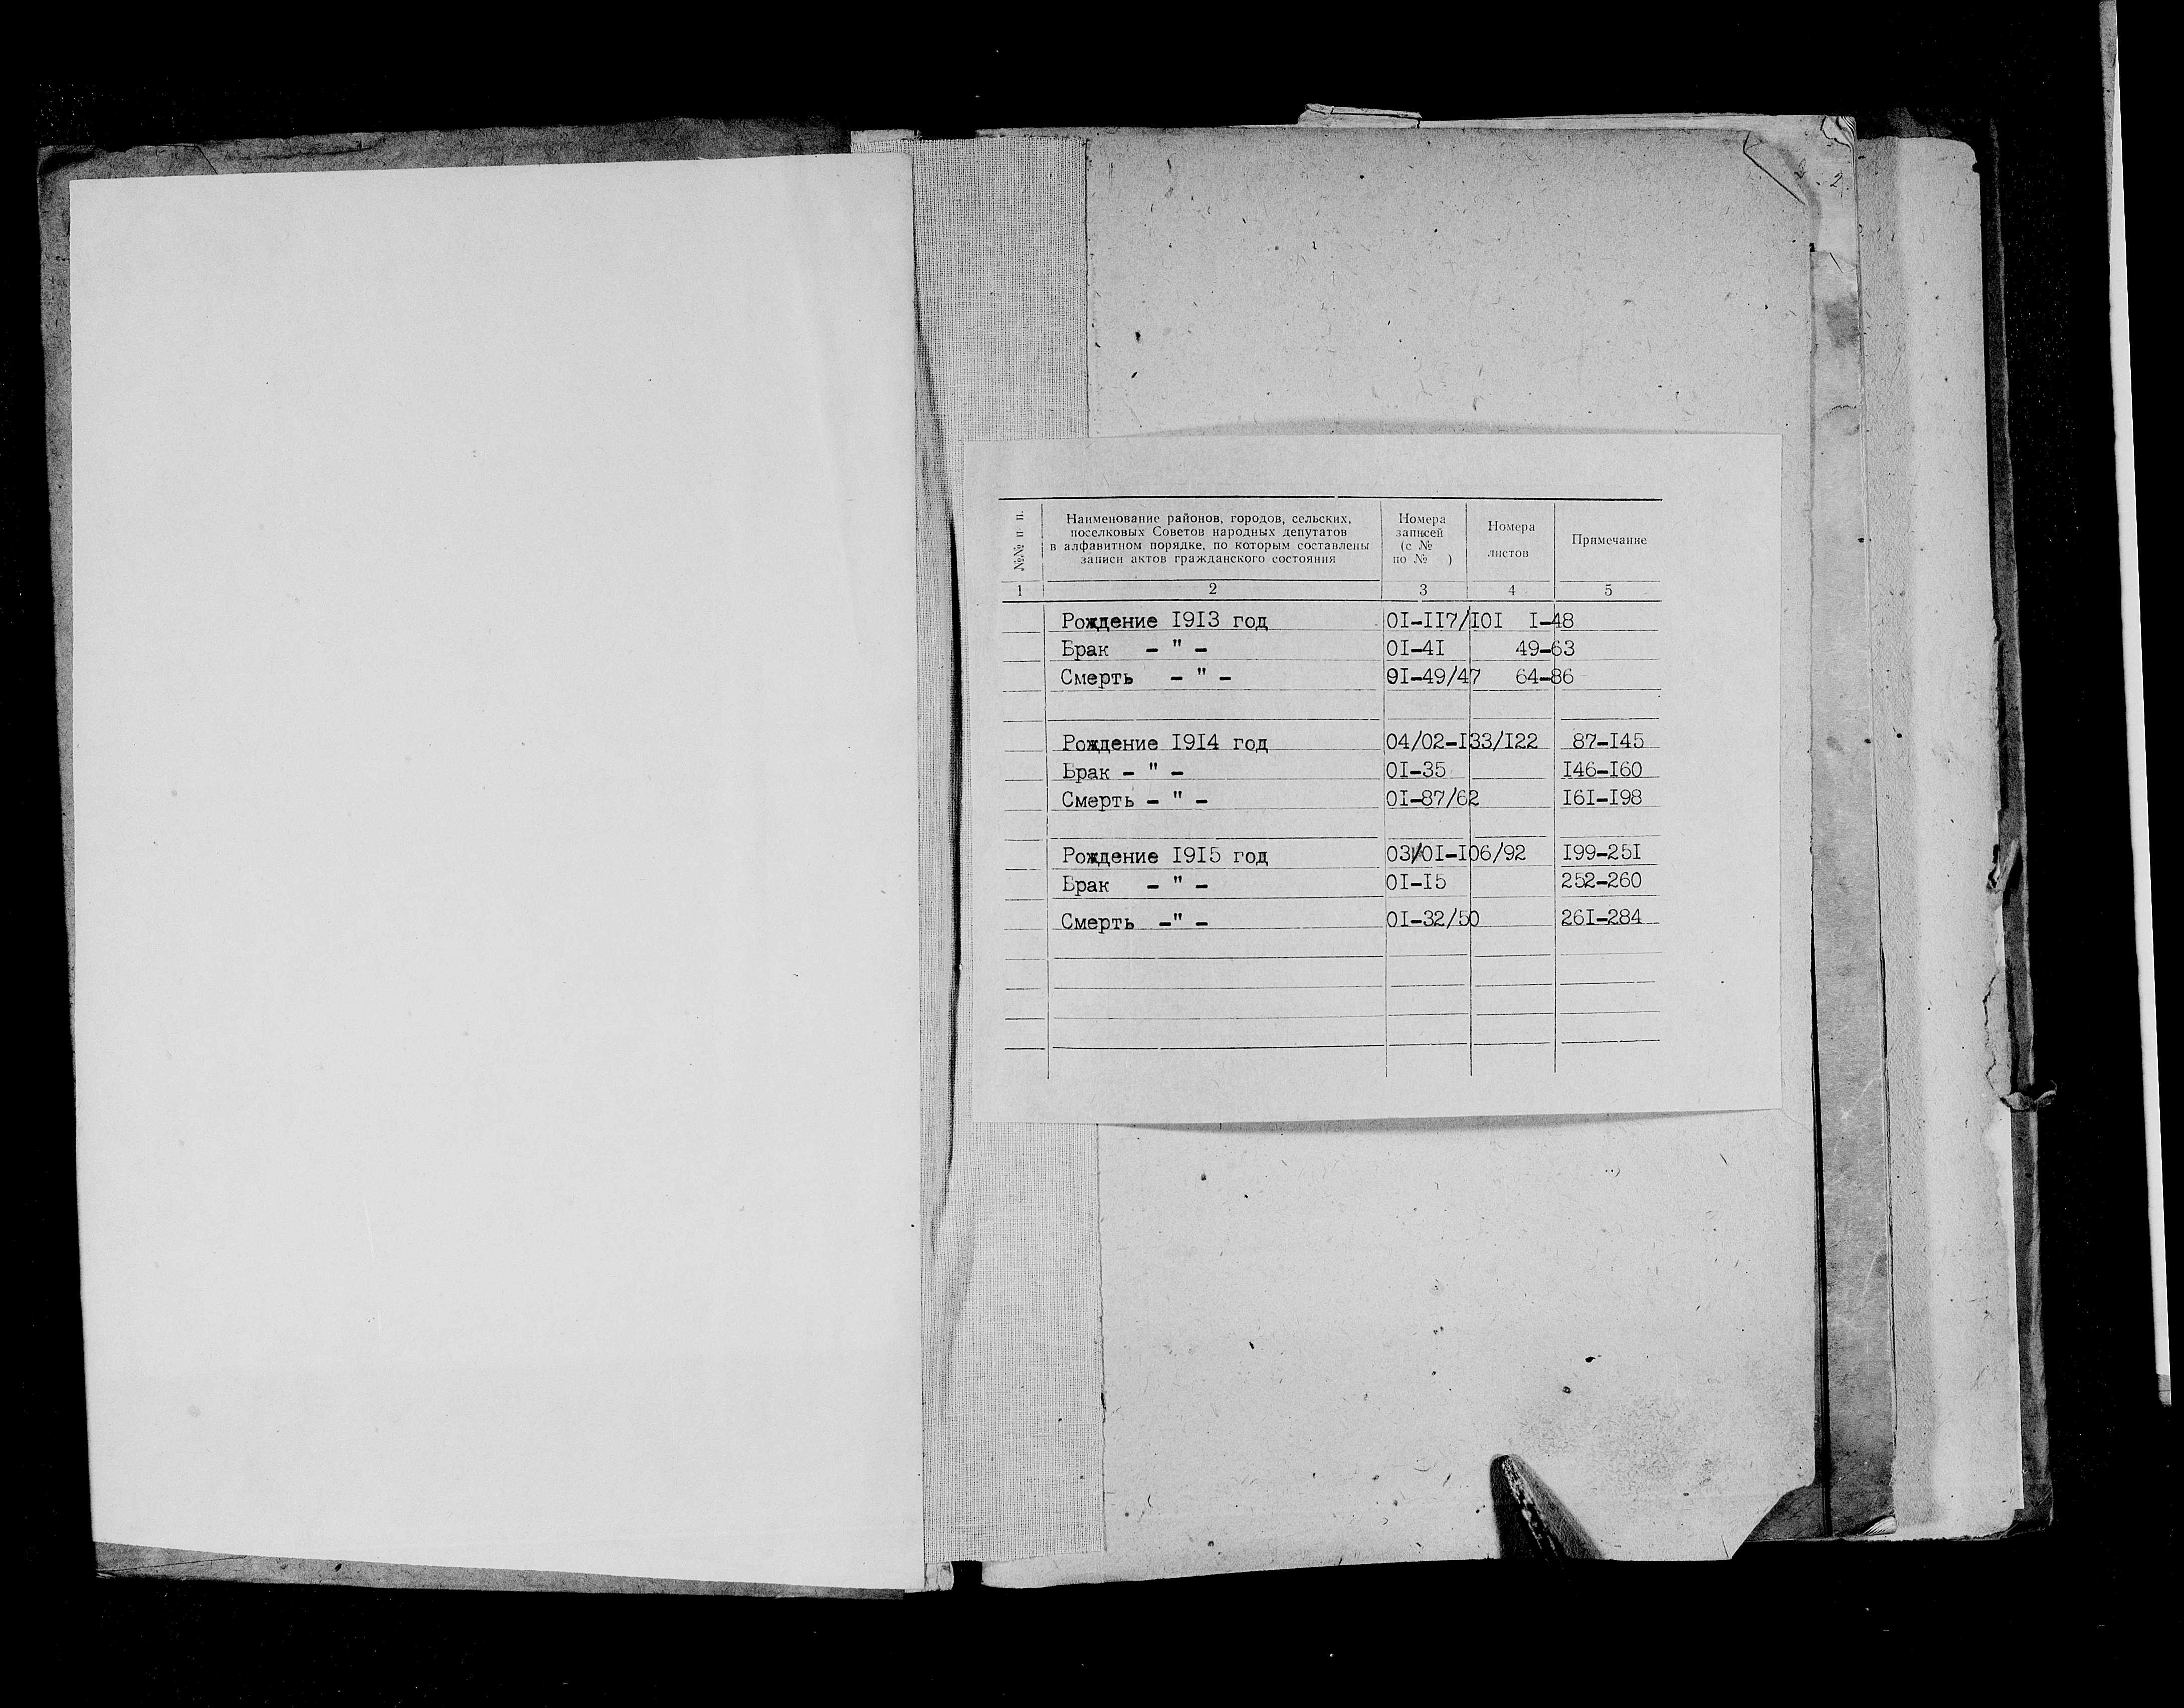 №№ п п.
Наименование районов, городов, сельских,
поселковых Советов народных депутатов
в алфавитном порядке, по которым составлены
записи актов гражданского состояния
Номера
записей
(с №
по № )
Номера
листов
Примечание
1 2 3 4 5
Рождение I9I3 год 0I-II7/I0I I-48
Брак - " - 0I-4I 49-63
Смерть - " - 9I-49/47 64-86
Рождение I9I4 год 04/02-I33/I22 87-I45
Брак - " - 0I-35 I46-I60
Смерть - " - 0I-87/62 I6I-I98
Рождение I9I5 год 03/0I-I06/92 I99-25I
Брак - " - 0I-I5 252-260
Смерть -" - 0I-32/50 26I-284